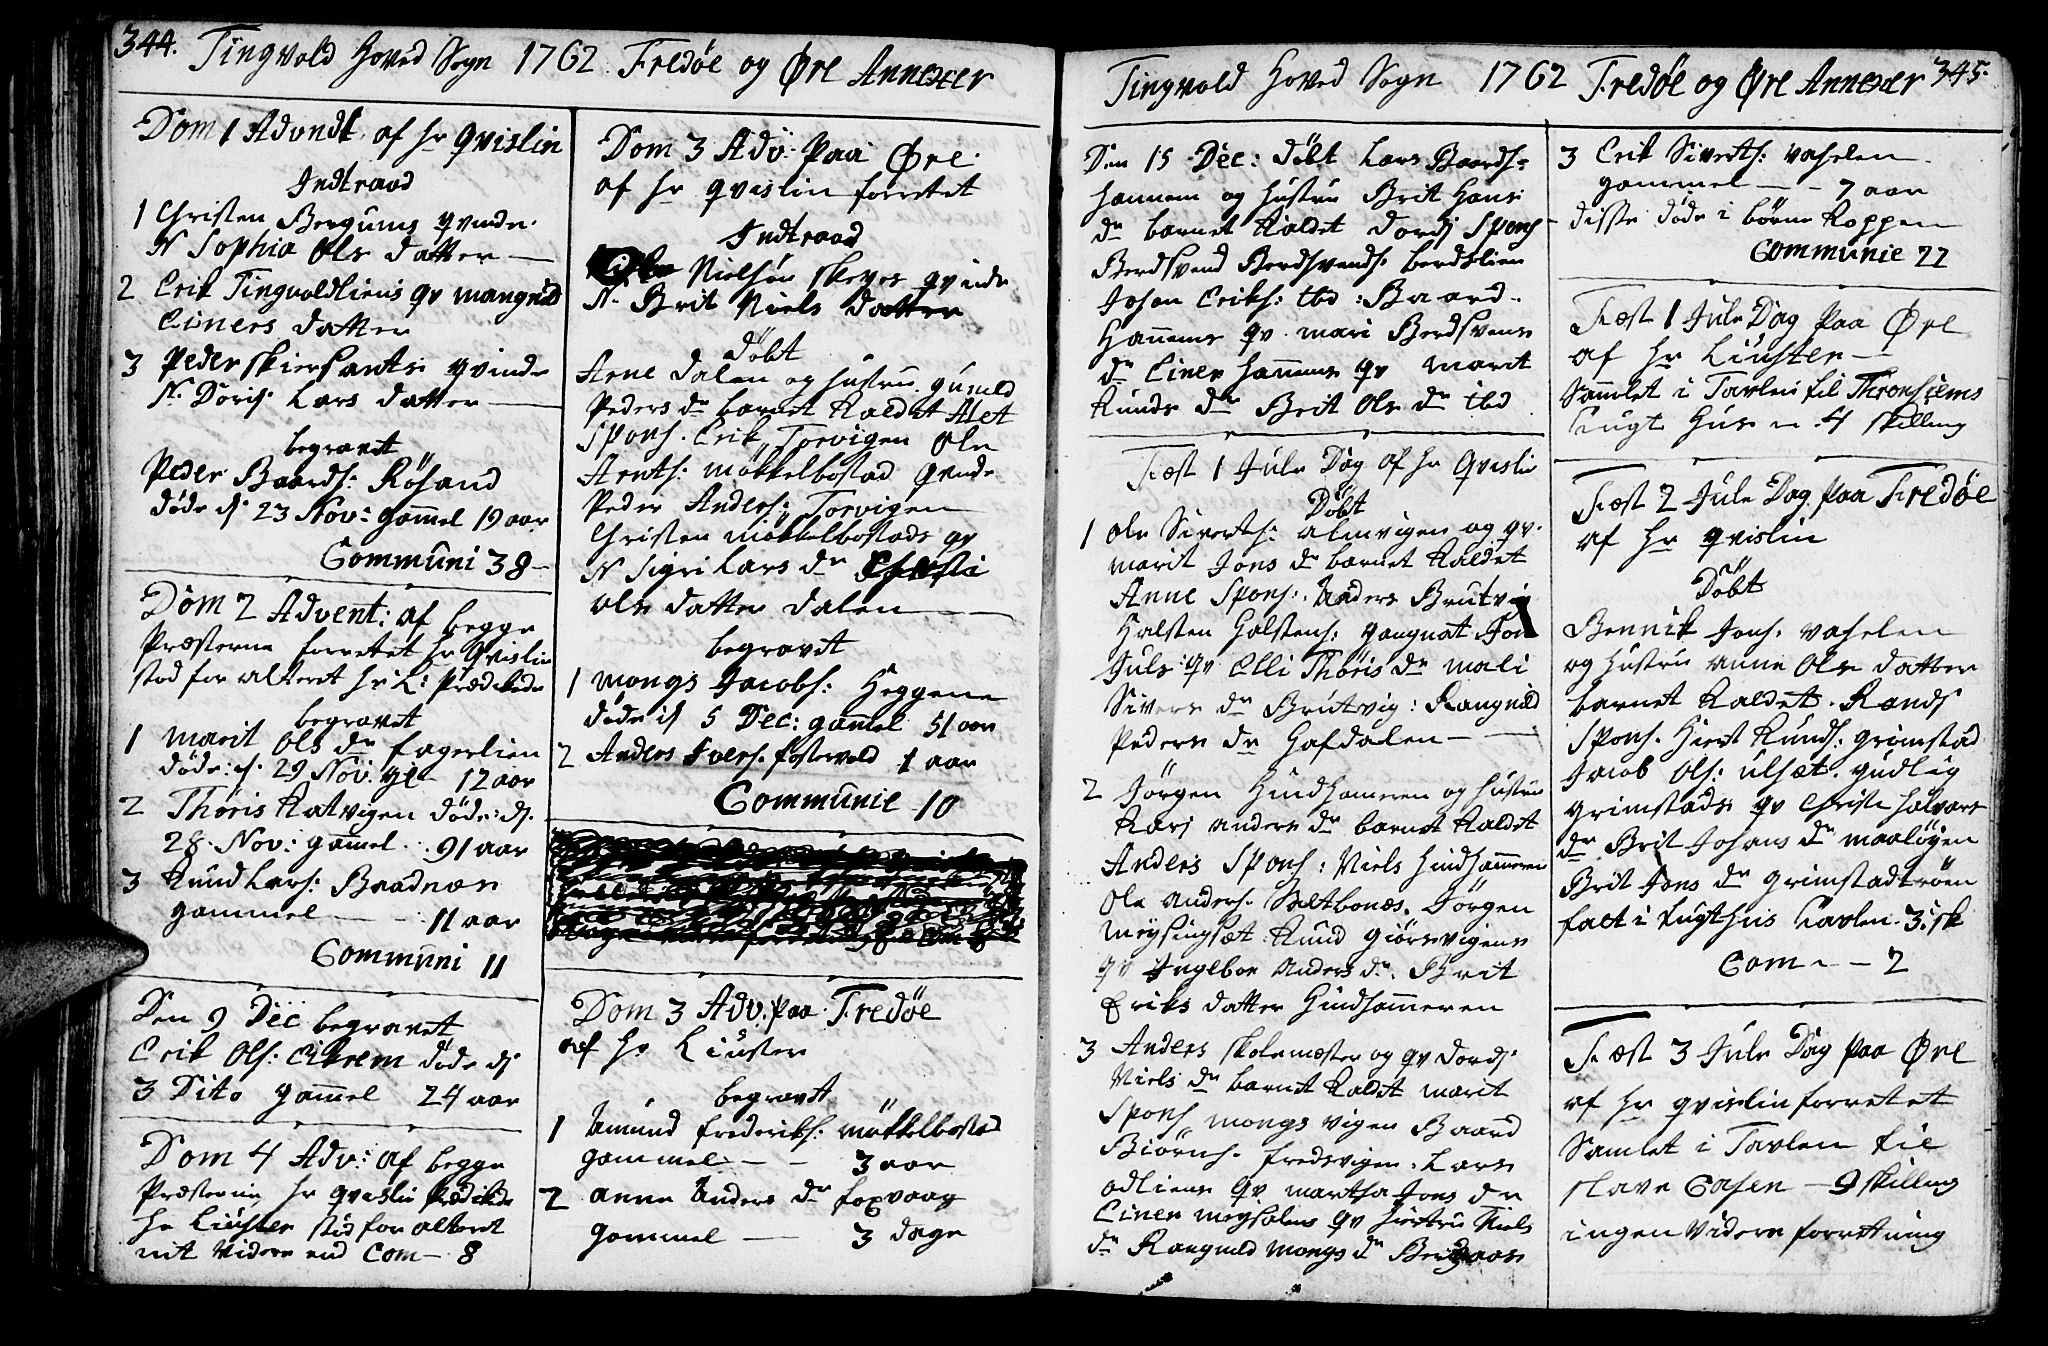 344. Tingvold Hoved Sogn 1762. Fredøe og Øre Annexer
Dom 1 Advndt. af hr Qvislin
Indtraad
1 Christen Bergums qvinde
N Sophia Ols datter —
2 Erik Tingvoldliens qv mangnild
Einers datter
3 Peder skiersants qvinde
N. Doris. Lars datter —
begravet
Peder Baards: Rösand
døde d. 23 Nov: gammel 19 aar
Communi 38 —
Dom 2 Advent: af begge
Præsterne forretet hr Qvislin
stod for alteret hr L: Prædikede
begravet
1 marit Ols dr fagerlien
døde: d. 29 Nov. gl 12 aar
2 Thöris Katvigen döde: d.
28. Nov: gammel. 91 aar
3 Knud Lars: Baadnæs
gammel — 11 aar
Communi 11
Den 9 Dec begravet
Erik Ols: Eikrem døde d
3 Dito gammel 24 aar
Dom 4 Adv: af begge
Præsterne hr qvislin Prædikede
hr Liuster stod for alteret
nit Videre end Com — 8
Dom 3 Adv: paa Øre
af hr qvislin forretet
Indtraad
Nielsön skeves qvinde
N. Brit Niels datter
Døbt
Arne dalen og hustru gunild
Peders dr barnet Kaldet Alet
Spons. Erik Torvigen Ole
Arnts: mökkelbostad qvinde
Peder Anders: Torvigen
Christen mökkelbostads qv
N Sigri Lars dr Chersti
Ols datter dalen —
begravet
1 mongs Jacobs: Heggene
døde d 5 Dec: gammel 51 aar
2 Anders Ivers. fostervold 1 aar
Communie 10
Dom 3 Adv. paa Fredøe
af hr Liuster
begravet
1 Amund frederiks: mökkelbostad
gammel — 3 aar
2 anne Anders dr foxvaag
gammel — 3 dage
Tingvold Hoved Sogn 1762 Fredøe og Øre Annexer 345.
Den 15 Dec: döbt Lars Baards=
hannem og hustru Brit Hans
dr barnet Kaldet Dordj Spons
Berdsvend Berdsvends. berdslien
Johan Eriks: ibd: Baard-
Hannems qv. mari Berdsvens
dr Einer hannems qv marit
Knuds dr Brit Ols dr ibd
Fæst 1 Jule Dag af hr Qvislin
Döbt
1 Ole Siverts: almvigen og qv.
marit Jons dr barnet Kaldet
Anne Spons: Anders Brutvig
Halsten Halstens: gangnat Jon
Juls: qv Elli Thöris dr mali
Sivers dr Brutvig: Rangnild
Peders dr Hafdalen —
2 Jörgen Hindhameren og hustru
Kari anders dr barnet Kaldet
Anders Spons: Niels hindhammeren
Ole anders. Saltbonæs. Jörgen
meysingsæt Knud giörsvigens
qv Ingebor Anders dr. Brit
Eriks datter Hindhammeren
3 Anders skolemester og qv Dordj
Niels dr barnet Kaldet marit
Spons mongs vigen Baard
Biörns. fredsvigen. Lars
odliens qv martha Jons dr
Einer meysalens qv Niels
dr Rangnild mongs dr
3 Erik Siverts: vaselen
gammel — 7 aar
disse döde i börne Koppen
Communie 22
Fæst 1 Jule Dag paa Øre
af hr Liuster —
Samlet i Tavlen til Thronhiems
Tugt Hus — 4 skilling
Fæst 2 Jule Dag paa Fredøe
af hr qvislin
Döbt
Bennik Jons. vaselen
og hustru anne Ols datter
barnet Kaldet. Randj
Spons. Knuds: grimstad
Jacob Ols: ulsæt. gudlig
grimstads qv Christi halvars
dr Brit Johans dr maalöyen
Brit Jons dr grimstadtröen
falt i tugthus tavlen. 3. sk
Com — 2
Fæst 3 Jule Dag paa Øre
af hr qvislin forretet
Samlet i Tavlen til
slave Casen — 9 skilling
ingen Videre forretning